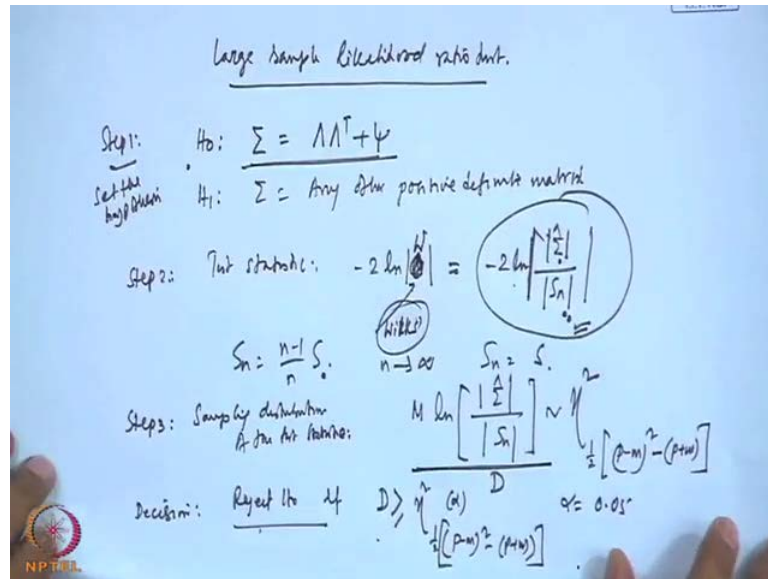 Large sample likelihood ratio test.
Step 1: H₀: Σ = ΛΛᵀ + ψ
Set the hypothesis H₁: Σ = Any other positive definite matrix
Step 2: Test statistic: -2 ln |W| = -2 ln [|Σ̂| / |Sn|]
Wilks'
Sn = n-1/n S. n→∞ Sn = S.
Step 3: Sampling distribution M ln [|Σ̂| / |Sn|] ~ χ² ½[(p-m)² - (p+m)]
of the test statistic: D
Decision: Reject H₀ if D ≥ χ² (α) ½[(p-m)² - (p+m)] α = 0.05
NPTEL